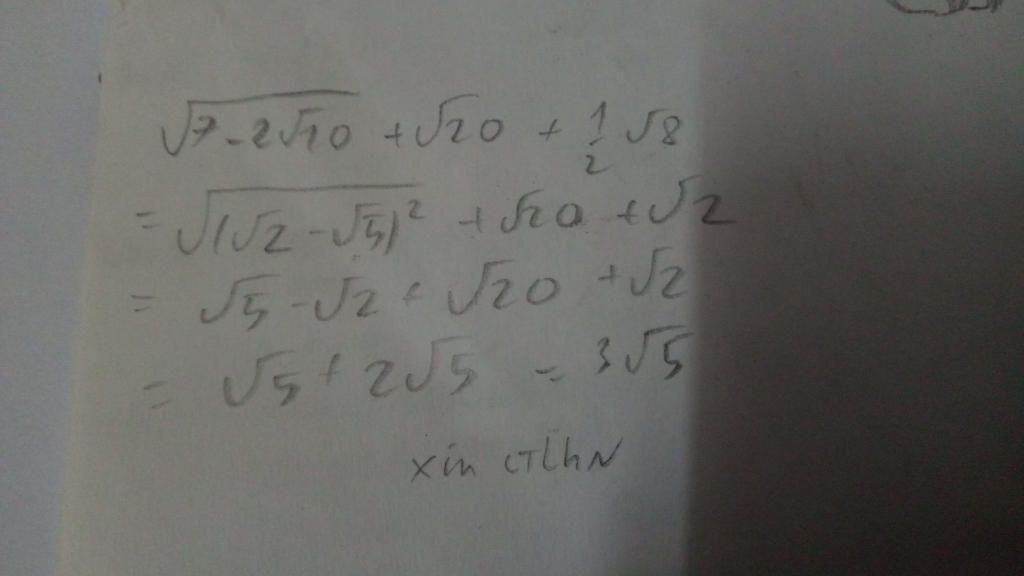 √(7-2√10) + √20 + 1/2 √8
= √((√2 - √5)²) + √20 + √2
= √5 - √2 + √20 + √2
= √5 + 2√5 = 3√5
xin CTLhN